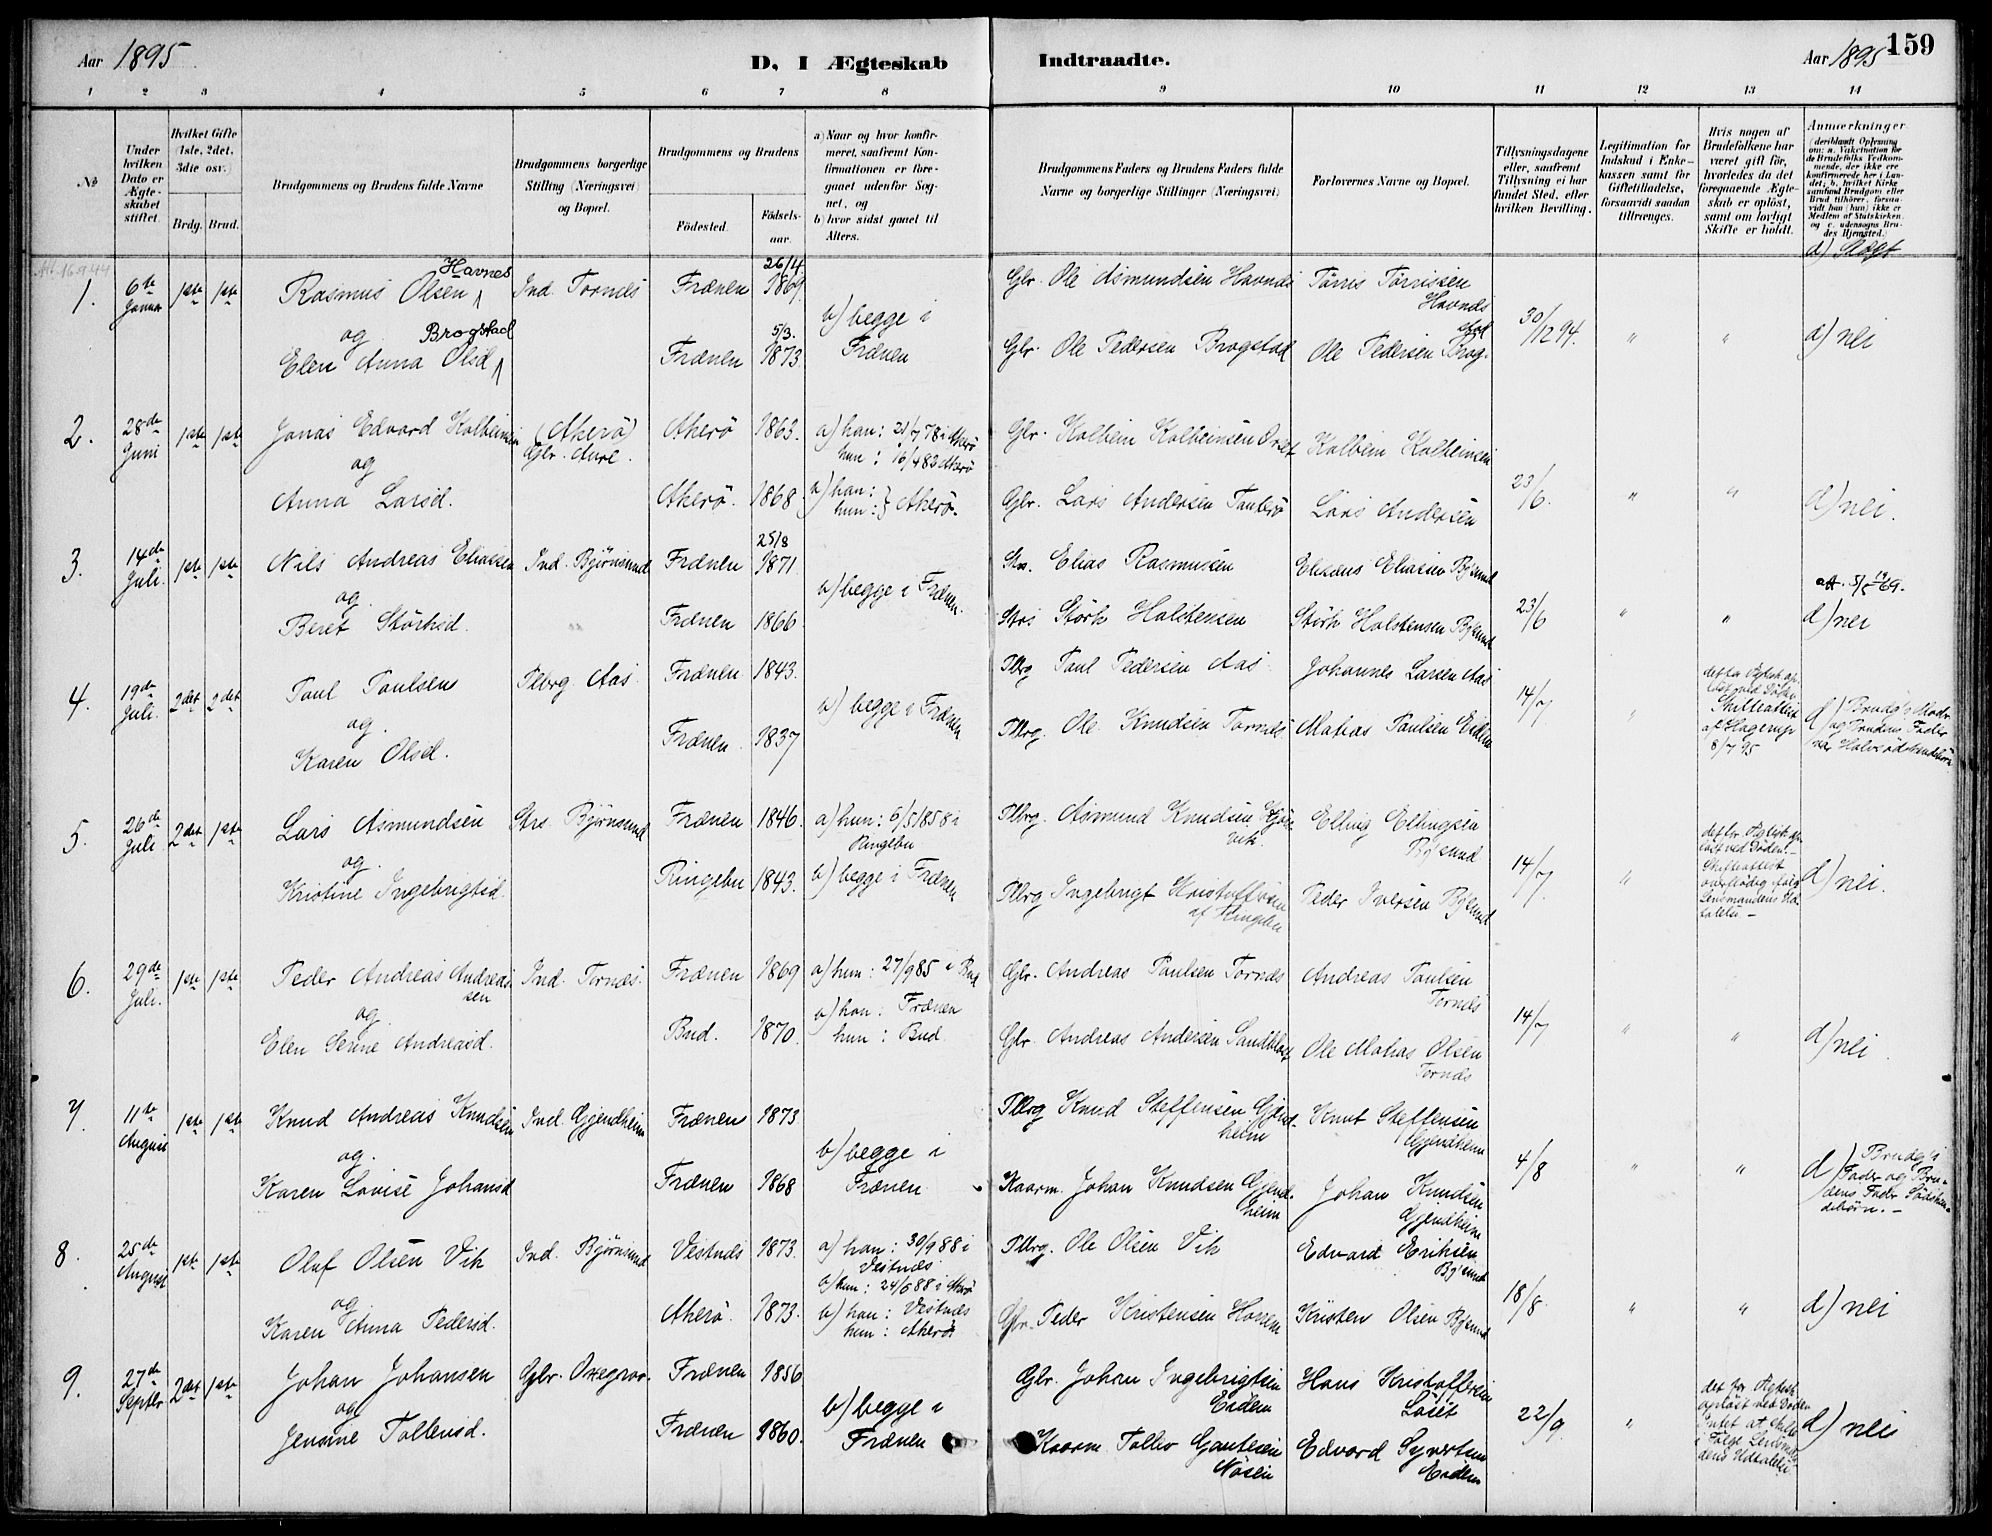 Aar 1895
D, I Ægteskab
Indtraadte.
Aar 1895
159
1 2 3 4 5 6 7 8 9 10 11 12 13 14
№
Under hvilken Dato er Ægteskabet stiftet.
Hvilket Gifte (1ste, 2det, 3die osv.)
Brdg. Brud.
Brudgommens og Brudens fulde Navne
Brudgommens borgerlige Stilling (Næringsvei) og Bopæl.
Brudgommens og Brudens
Födested.
Födselsaar.
a) Naar og hvor konfirmeret, saafremt Konfirmationen er foregaaet udenfor Sognet, og
b) hvor sidst gaaet til Alters.
Brudgommens Faders og Brudens Faders fulde Navne og borgerlige Stillinger (Næringsvei)
Forlovernes Navne og Bopæl.
Tillysningsdagene eller, saafremt Tillysning ei har fundet Sted, efter hvilken Bevilling.
Legitimation for Indskud i Enkekassen samt for Giftetilladelse, forsaavidt saadan tiltrænges.
Hvis nogen af Brudefolkene har været gift för, hvorledes da det foregaaende Ægteskab er oplöst, samt om lovligt Skifte er holdt.
Anmærkninger (deriblandt Oplysning om: a. Vakcination for de Brudefolks Vedkommende, der ikke ere konfirmerede her i Landet; b. hvilket Kirkesamfund Brudgom eller Brud tilhörer, forsaavidt han (hun) ikke er Medlem af Statskirken, og c. udensogns Brudes Hjemsted.)
d) Slægt
Att. 16.9.44
1. 6te Januar 1ste 1ste Rasmus Olsen Havnes Ind. Tornes Frænen 26/4 1869 Glr. Ole Asmundsen Havnes Tørris Tørrissen Havnes
og
Elen Anna Olsd Brogstad Frænen 5/3. 1873 b) begge i Frænen Glr. Ole Pedersen Brogstad Ole Pedersen Brogstad 30/12 94. " " d) nei
2. 28de Juni 1ste 1ste Jonas Edvard Kolbeinsen (Akerö) Glr. Aure. Akerö 1863. a) han: 21/7 78 i Akerö hun: 16/4 83 Akerö Glr. Kolbein Kolbeinsen Kolbein Kolbeinsen
og
Anna Larsd. Akerö. 1868 b) han: hun: } Akerö. Glr. Lars Andersen Lars Andersen 23/6. " " d) nei.
3. 14de Juli. 1ste 1ste Nils Andreas Eliassen Ind. Björnsund Frænen 25/8 1871 Elias Rasmussen Eliasen Bj.sund att. 5/5 1969.
og
Beret Störksd. Frænen 1866 b) begge i Frænen. Strs. Störk Halstensen Störk Halstensen Bj.sund 23/6 " " d) nei
4. 19de Juli. 2det 2det Paul Paulsen Plbrg Aas. Frænen 1843. b) begge i Frænen Plbrg Paul Pedersen Aas Johannes Larsen Aas
og
Karen Olsd. Frænen 1837 Plbrg. Ole Knudsen Tornes Matias Paulsen Eidem 14/7 "
8/7 95
d) Brudg's Moder og Brudens Fader var Halvsødskendebörn
5. 26de Juli 2det 1ste Lars Asmundsen Strs. Björnsund Frænen 1846. a) hun: 6/5 1858 i Ringebu Plbrg. Asmund Knudsen Elling Ellingsen Bj.sund
og
Kristine Ingebrigtsd. Ringebu 1843. b) begge i Frænen Plbrg Ingebrigt Kristoffersen af Ringebu Peder Iversen Bj.sund 14/7. "
Lensmandens Udtalelse. —
d) nei.
6. 29de Juli. 1ste 1ste Peder Andreas Andreassen Ind. Tornes. Frænen 1869 a) hun: 27/9 85 i Bud Glr. Andreas Paulsen Tornes Andreas Paulsen Tornes
og
Elen Serine Andreasd. Bud. 1870. b) han: Frænen hun: Bud Glr. Andreas Andersen Ole Matias Olsen Tornes 14/7 " " d) nei.
7. 11te August 1ste 1ste Knud Andreas Knudsen Ind. Gjendheim Frænen 1873 Plbrg Knud Steffensen Gjendheim Knut Steffensen Gjendheim
og.
Karen Lovise Johansd Frænen 1868 b) begge i Frænen Kaarm. Johan Knudsen Gjendheim Johan Knudsen Gjendheim 4/8 " " d) Brudg's Fader og Brudens Fader Södskendebörn. —
8. 25de August 1ste 1ste Oluf Olsen Vik Ind. Björnsund Vestnes 1873. a) han: 30/9 88 i Vestnes a) hun: 24/6 88 i Akerö Plbrg. Ole Olsen Vik Edvard Eriksen Bj.sund
og
Karen Anna Pedersd. Akerö. 1873. b) han: Vestnes hun: Akerö Glr. Peder Kristensen Kristen Olsen Bj.sund 18/8. " " d) nei
9. 27de Septbr 2det 1ste Johan Johansen Glr. Frænen 1856 Glr. Johan Ingebrigtsen Eidem Hans Kristoffersen Löset
og
Jensine Tollevsd. Frænen 1860. b) begge i Frænen Kaarm. Tollev Gautesen Nösen Edvard Syvertsen Eidem 22/9. "
i Følge Lensmandens Udtalelse
d) nei